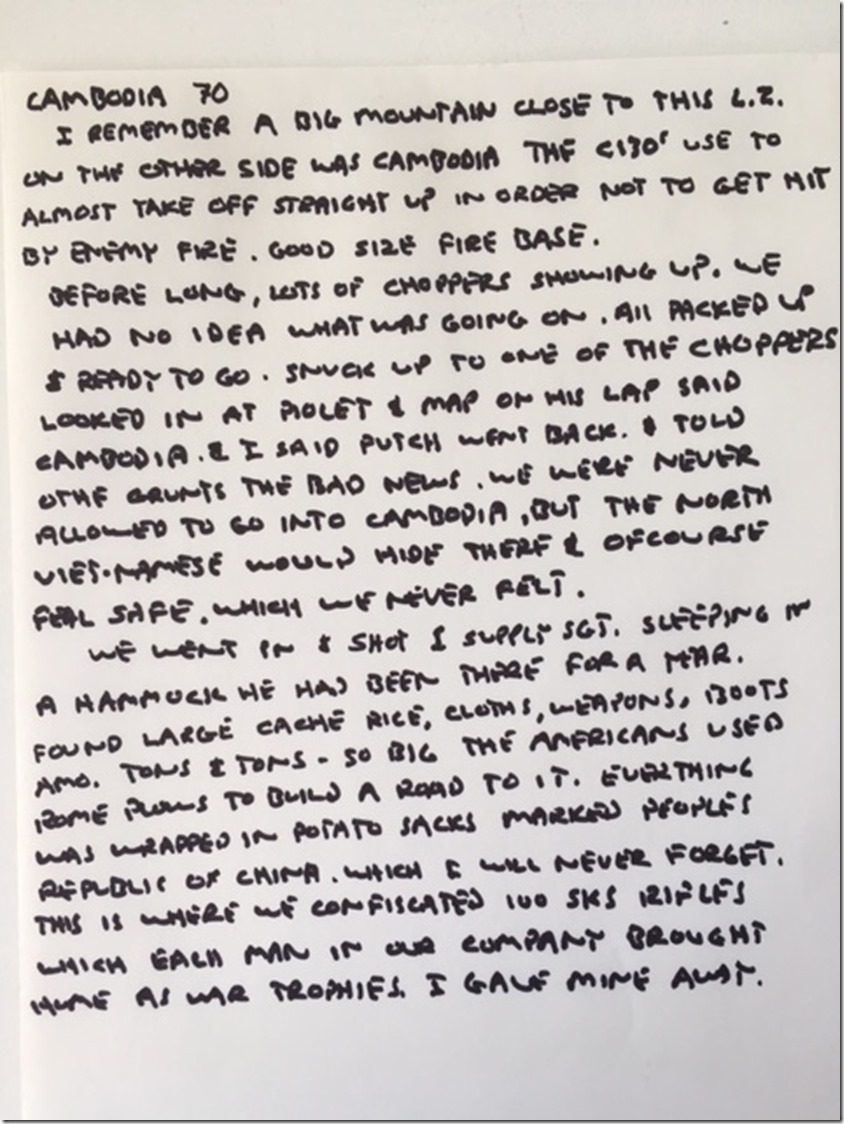 CAMBODIA 70
I REMEMBER A BIG MOUNTAIN CLOSE TO THIS L.Z.
ON THE OTHER SIDE WAS CAMBODIA THE C130' USE TO
ALMOST TAKE OFF STRAIGHT UP IN ORDER NOT TO GET HIT
BY ENEMY FIRE. GOOD SIZE FIRE BASE.
BEFORE LONG, LOTS OF CHOPPERS SHOWING UP. WE
HAD NO IDEA WHAT WAS GOING ON. All PACKED UP
& READY TO GO. SNUCK UP TO ONE OF THE CHOPPERS
LOOKED IN AT PIOLET & MAP ON HIS LAP SAID
CAMBODIA. & I SAID PUTCH WENT BACK. & TOLD
OTHE GRUNTS THE BAD NEWS. WE WERE NEVER
ALLOWED TO GO INTO CAMBODIA, BUT THE NORTH
VIET-NAMESE WOULD HIDE THERE & OFCOURSE
FEAL SAFE. WHICH WE NEVER FELT.
WE WENT IN & SHOT 1 SUPPLY SGT. SLEEPING IN
A HAMMOCK HE HAD BEEN THERE FOR A YEAR.
FOUND LARGE CACHE RICE, CLOTHS, WEAPONS, BOOTS
AMO. TONS & TONS - SO BIG THE AMERICANS USED
ROME PLOWS TO BUILD A ROAD TO IT. EVERTHING
WAS WRAPPED IN POTATO SACKS MARKED PEOPLES
REPUBLIC OF CHINA. WHICH I WILL NEVER FORGET.
THIS IS WHERE WE CONFISCATED 100 SKS RIFLES
WHICH EACH MAN IN OUR COMPANY BROUGHT
HOME AS WAR TROPHIES. I GAVE MINE AWAY.